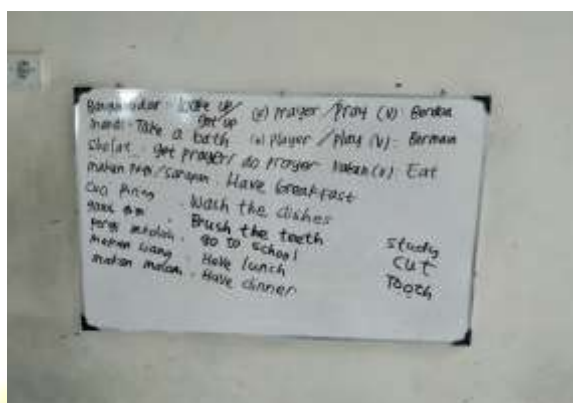 Bangun tidur : Wake up/ get up (n) Prayer / Pray (v) : Berdoa
mandi : Take a bath (n) Player / Play (v) : Bermain
Sholat : get prayer/ do prayer makan (v) : Eat
makan Pagi/sarapan : Have breakfast
cuci Piring : Wash the dishes
gosok gigi : Brush the teeth
Pergi sekolah : Go to school study
makan siang : Have lunch cut
makan malam : Have dinner Tooth